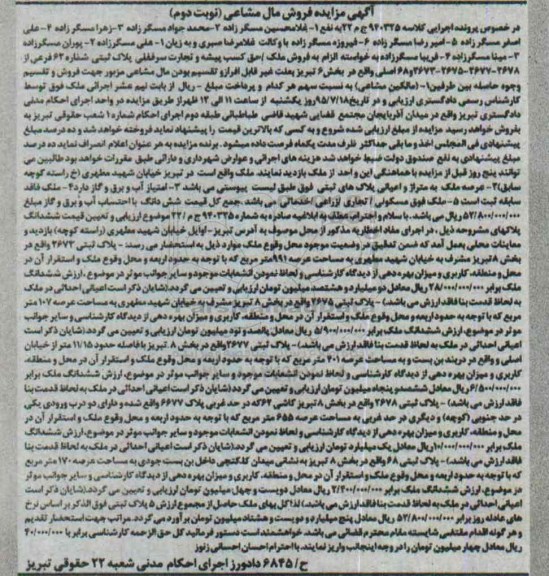 آگهی مزایده فروش مال مشاعی (نوبت دوم)
در خصوص پرونده اجرایی کلاسه ۹۴۰۳۲۵ ج ۲۲ به نفع ۱- غلامحسین مسگر زاده ۲- محمد جواد مسگر زاده ۳- زهرا مسگر زاده ۴- علی
اصغر مسگر زاده ۵- امیر رضا مسگر زاده ۶- فیروزه مسگر زاده با وکالت غلامرضا صبری و به زیان ۱- علی مسگرزاده ۲- پوران مسگرزاده
۳- مینا مسگرزاده ۴- فریبا مسگرزاده به خواسته الزام به فروش ملک /حق کسب پیشه و تجارت سرقفلی پلاک ثبتی شماره ۶۳ فرعی از
۲۶۷۸-۲۶۷۷-۲۶۷۵-۲۶۷۳و۶۸ اصلی واقع در بخش ۶ تبریز بعلت غیر قابل افرازو تقسیم بودن مال مشاعی مزبور جهت فروش و تقسیم
وجوه حاصله بین طرفین ۱- (مالکین مشاعی) به نسبت سهم هر کدام و پرداخت مبلغ - ریال از بابت نیم عشر اجرائی ملک فوق توسط
کارشناس رسمی دادگستری ارزیابی و در تاریخ ۹۵/۷/۱۸ روز یکشنبه از ساعت ۱۱ الی ۱۲ ظهراز طریق مزایده در واحد اجرای احکام مدنی
دادگستری تبریز واقع در میدان آذربایجان مجتمع قضایی شهید قاضی طباطبائی طبقه دوم اجرای احکام شماره ۱ شعب حقوقی تبریز به
بفروش خواهد رسید. مزایده از مبلغ ارزیابی شده شروع و به کسی که بالاترین قیمت را پیشنهاد نماید فروخته خواهد شد و ده درصد مبلغ
پیشنهادی فی المجلس اخذ و مابقی حداکثر ظرف مدت یکماه فرصت داده میشود . برنده مزایده به هر عنوان اعلام انصراف نماید ده درصد
مبلغ پیشنهادی به نفع صندوق دولت ضبط خواهد شد هزینه های اجرائی و عوارض شهرداری و دارائی طبق مقررات خواهد بود طالبین می
توانند پنج روز قبل از مزایده با هماهنگی این واحد از ملک بازدید نمایند. ملک واقع است در تبریز خیابان شهید مطهری (خ راسته کوچه
سابق) ۲- عرصه ملک به متراژ و اعیانی پلاک های ثبتی فوق طبق لیست پیوستی می باشد ۳- امتیاز آب و برق و گاز دارد ۴- ملک فاقد
سابقه ثبت است ۵- ملک فوق مسکونی / تجاری /زراعی /خدماتی می باشد .جمع کل قیمت شش دانگ با احتساب آب و برق و گاز مبلغ
۵۲/۸۰۰/۰۰۰/۰۰۰ ریال می باشد. با سلام و احترام، عطف به ابلاغیه صادره به شماره ۹۴۰۳۲۵ ج م / ۲۲ موضوع ارزیابی و تعیین قیمت ششدانگ
پلاکهای مشروحه ذیل ، در اجرای مفاد اخطاریه مذکور از محل موصوف به آدرس تبریز- اوایل خیابان شهید مطهری (راسته کوچه) بازدید و
معاینات محلی بعمل آمد که ضمن تدقیق در وضعیت موجود محل وقوع ملک موارد ذیل به استحضار می رسند - پلاک ثبتی ۲۶۷۳ واقع در
بخش ۸ تبریز مشرف به خیابان شهید مطهری به مساحت عرصه ۹۹۱ متر مربع که با توجه به حدود اربعه و محل وقوع ملک و استقرار آن در
محل و منطقه، کاربری و میزان بهره دهی از دیدگاه کارشناسی و لحاظ نمودن انشعابات موجود و سایر جوانب موثر در موضوع ،ارزش ششدانگ
ملک برابر ۲۸/۰۰۰/۰۰۰/۰۰۰ ریال معادل دو میلیارد و هشتصد میلیون تومان ارزیابی و تعیین می گردد.(شایان ذکر است اعیانی احداثی در ملک
به لحاظ قدمت بنا فاقد ارزش می باشد) - پلاک ثبتی ۲۶۷۵ واقع در بخش ۸ تبریز مشرف به خیابان شهید مطهری به مساحت عرصه ۱۰۷ متر
مربع که با توجه به حدود اربعه و محل وقوع ملک و استقرار آن در محل و منطقه، کاربری و میزان بهره دهی از دیدگاه کارشناسی و سایر جوانب
موثر در موضوع، ارزش ششدانگ ملک برابر ۵/۹۰۰/۰۰۰/۰۰۰ ریال معادل پانصد و نود میلیون تومان ارزیابی و تعیین می گردد.(شایان ذکر است
اعیانی احداثی در ملک به لحاظ قدمت بنا فاقد ارزش می باشد.)- پلاک ثبتی ۲۶۷۷ واقع در بخش ۸ تبریز با فاصله حدود ۱۱/۱۵ متر از خیابان
اصلی و واقع در دربند بن بست و به مساحت عرصه ۴۰۱ متر مربع که با توجه به حدود اربعه و محل وقوع ملک و استقرار آن در محل و منطقه،
کاربری و میزان بهره دهی از دیدگاه کارشناسی و لحاظ نمودن انشعابات موجود و سایر جوانب موثر در موضوع، ارزش ششدانگ ملک برابر
۶/۵۰۰/۰۰۰/۰۰۰ ریال معادل ششصدو پنجاه میلیون تومان ارزیابی و تعیین می گردد.(شایان ذکر است اعیانی احداثی در ملک به لحاظ قدمت بنا
فاقد ارزش می باشد) - پلاک ثبتی ۲۶۷۸ واقع در بخش ۸ تبریز کاشی ۶۲ که در حد غربی پلاک ۶۶۷۷ واقع شده و دارای دو درب ورودی یکی
در حد جنوبی (کوچه) و دیگری در حد غربی به مساحت عرصه ۶۵۵ متر مربع که با توجه به حدود اربعه و محل وقوع ملک و استقرار آن در
محل و منطقه، کاربری و میزان بهره دهی از دیدگاه کارشناسی و لحاظ نمودن انشعابات موجود و سایر جوانب موثر در موضوع، ارزش ششدانگ
ملک برابر ۱۰/۰۰۰/۰۰۰/۰۰۰ ریال معادل یک میلیارد تومان ارزیابی و تعیین می گردد (شایان ذکر است اعیانی احداثی در ملک به لحاظ قدمت بنا
فاقد ارزش می باشد.)- پلاک ثبتی ۶۸ واقع در بخش ۸ تبریز به نشانی میدان کلکنچی داخل بن بست جودی به مساحت عرصه ۱۷۰ متر مربع
که با توجه به حدود اربعه و محل وقوع ملک و استقرار آن در محل و منطقه، کاربری و میزان بهره دهی از دیدگاه کارشناسی و سایر جوانب موثر
در موضوع، ارزش ششدانگ ملک برابر ۲/۴۰۰/۰۰۰/۰۰۰ ریال معادل دویست و چهل میلیون تومان ارزیابی و تعیین می گردد.(شایان ذکر است
اعیانی احداثی در ملک به لحاظ قدمت بنا فاقد ارزش می باشد) لذا کل بهای ملک حاصل از مجموع ارزش ۵ پلاک ثبتی فوق الذکر بر اساس نرخ
های عادله روز برابر ۵۲/۸۰۰/۰۰۰/۰۰۰ ریال معادل پنج میلیارد و دویست و هشتاد میلیون تومان بر آورد می گردد. مراتب جهت استحضار تقدیم
و هر گونه اقدام مقتضی شایسته مقام محترم قضائی می باشد. خواهشمند است دستور فرمائید کل حق الزحمه کارشناسی برابر با ۴۰/۰۰۰/۰۰۰
ریال معادل چهار میلیون تومان را در وجه اینجانب واریز نمایند. با احترام احسان احسانی زنوز
ح/ ۶۸۴۵ دادورز اجرای احکام مدنی شعبه ۲۲ حقوقی تبریز